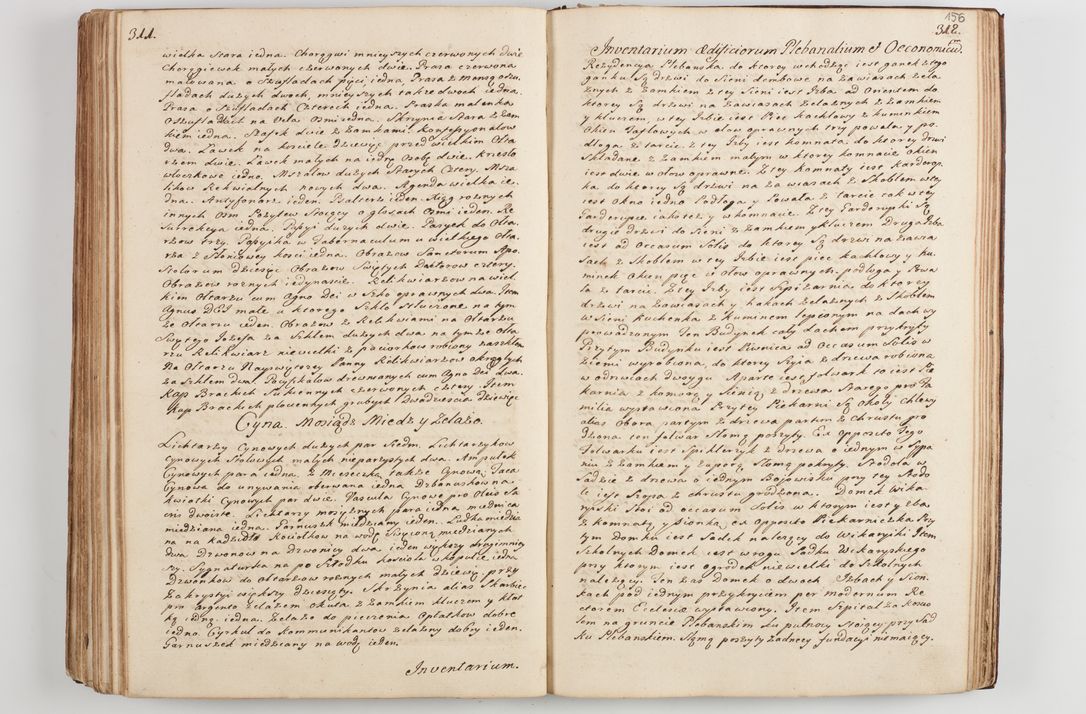 311.
wielka stara iedna. Chorągwi mnieyszych czerwonych dwie
Chorągiewek małych czerwonych dwie. Prasa czerwona
malowana, o szufladach pięci iedna. Prasa z Mensą o szu-
fladach dużych dwoch, mnieyszych także dwoch iedna.
Prasa o szufladach czterech iedna. Praska malenka
o szufladkach na vela osmi iedna. Skrzynia stara z Zam-
kiem iedna. Szafek dwie z Zamkami. Konfessyonałow
dwa. Ławek na kościele dziewięć przed wielkim Ołta-
rzem dwie. Ławek małych na iedną osobę dwie. Krzesło
włoczkowe iedno. Mszałow dużych starych cztery. Msza-
likow Rekwialnych nowych dwa. Agenda wielka ie-
dna. Antyfonarz ieden. Psalterz ieden. Xiąg rożnych
innych osm. Pozytew stoiący o głosach osmi ieden. Re
surrekcya iedna. Passyi dużych dwie. Passyek do Ołta-
rzow trzy. Passyika w Tabernaculum u wielkiego Ołta-
rza z słoniowey kosci iedna. Obrazow Sanctorum Apo-
stolorum dziesięć. Obrazow Swiętych Doktorow cztery.
Obrazow rożnych iedynascie. Relikwiarzow na wiel-
kim Ołtarzu cum Agno Dei w szkło oprawnych dwa. Item
Agnus DEI małe u ktorego szkło stłuczone na tym
że Ołtarzu ieden. Obrazow z Relikwiami na Ołtarzu
Swiętego Jozefa za szkłem dużych dwa na tymże Ołta-
rzu Relikwiarz niewielki z paciorkow robiony za szkłem
Na Ołtarzu Naywyższey Panny Relikwiarzow okrągłych
za szkłem dwa. Pacyfikałow drewnianych cum Agno Dei dwa.
Kap Brackich sukiennych czerwonych cztery. Item
Kap Brackich płociennych grubych dwadziescia dziewięć
Cyna. Mosiądz Miedz y Zelazo.
Lichtarzy cynowych dużych par siedm. Lichtarzykow
cynowych stołowych małych nieparzystych dwa. Ampułek
cynowych para iedna, z Miseczką także cynową. Taca
cynowa do umywania oberwana iedna. Dzbanuszkow na
kwiatki cynowych par dwie. Vascula cynowe pro Oleis Sa-
cris dwoiste. Lichtarzy mosyżnych para iedna miednica
miedziana iedna. Garnuszek miedziany ieden. Łudka miedzia
na na kadzidło. Kociołkow na wodę swięconą miedzianych
dwa. Dzwonow na dzwonicy dwa, ieden większy drugi mniey-
szy. Sygnaturka na po srzodku kościoła w kopulce iedna
Dzwonkow do Ołtarzow rożnych małych dziewięć, przy
Zakrystyi większy dziesiąty. Skrzynia alias skarbiec
pro argento żelazem okuta z Zamkiem kluczem y kłot
ką iedną iedna. Zelazo do pieczenia Opłatkow dobre
iedno. Cyrkul do Kommunikantow żelazny dobry ieden.
Garnuszek miedziany na wodę ieden.
Inventarium.
156
312.
Inventarium ædificiorum Plebanalium et Oeconomicor.
Rezydencyia Plebanska, do ktorey wchodząc iest ganek z tego
ganku są drzwi do sieni dembowe na Zawiasach żela-
znych z Zamkiem z tey sieni iest Izba ad Orientem do
ktorey są drzwi na Zawiasach żelaznych z Zamkiem
y kluczem, w tey Izbie iest piec kachlowy z kuminkiem
Okien taflowych w ołow oprawnych trzy powała y po-
dłoga z tarcic. Z tey Izby iest komnata, do ktorey drzwi
składane z Zamkiem małym w ktorey komnacie okien
iest dwie w ołow oprawne. Z tey komnaty iest kardero-
ka do ktorey są drzwi na Zawiasach z Skoblem w tey
iest okno iedno Podłoga y Powała z tarcic tak w tey
Garderupce iakoteż y w komnacie. Z tey Garderupki są
drugie drzwi do Sieni z Zamkiem y kluczem. Druga Izba
iest ad Occasum Solis do ktorey są drzwi na Zawia
sach z Skoblem w tey Izbie iest piec kachlowy y ku-
minek Okien pięć w ołow oprawnych, podłoga y Powa
ła z tarcic. Z tey Izby iest szpiżarnia do ktorey
drzwi na Zawiasach y hakach żelaznych z Skoblem
w sieni kuchenka z kuminem lepionym na dach wy
prowadzonym Ten Budynek cały dachem przykryty
Przytym Budynku iest Piwnica ad Occasum Solis w
ziemi wyrobiona, do ktorey szyia z drzewa robiona
w odrzwiach dwoygu. Aparte iest folwark to iest Pie
karnia z komorą y sienią z drzewa starego pro Fa-
milia wystawiona Przytey Piekarni są okoły chlewy
alias Obora partym z drzewa partim z chrustu gro-
dzona ten folwar słomą poszyty. Ex opposito tego
folwarku iest spichlerzyk z drzewa o iednym w szpa
niu z Zamkiem y zaporą słomą pokryty. Stodoła w
Sadzie z drzewa o iednym Bojowisku przy tey stodo
le iest szopa z chrustu grodzona. Domek wika-
ryski stoi ad occasum Solis w ktorym iest yzba
z komnatą y sionką ex opposito Piekarniczka Przy
tym domku iest sadek należący do wikaryiki Item
szkolnych Domek iest w rogu sadku wikaryskiego
przy ktorym iest ogrodek niewielki do szkolnych
należący. Ten zas domek o dwoch Izbach y sion-
kach pod iednym przykryciem per modernum Re
ctorem Ecclesiæ wystawiony. Item szpital za kościo
łem na gruncie Plebanskim ku pułnocy stoiący przy sad
ku Plebanskiem. Słomą poszyty żadney fundacyi niemaiący.